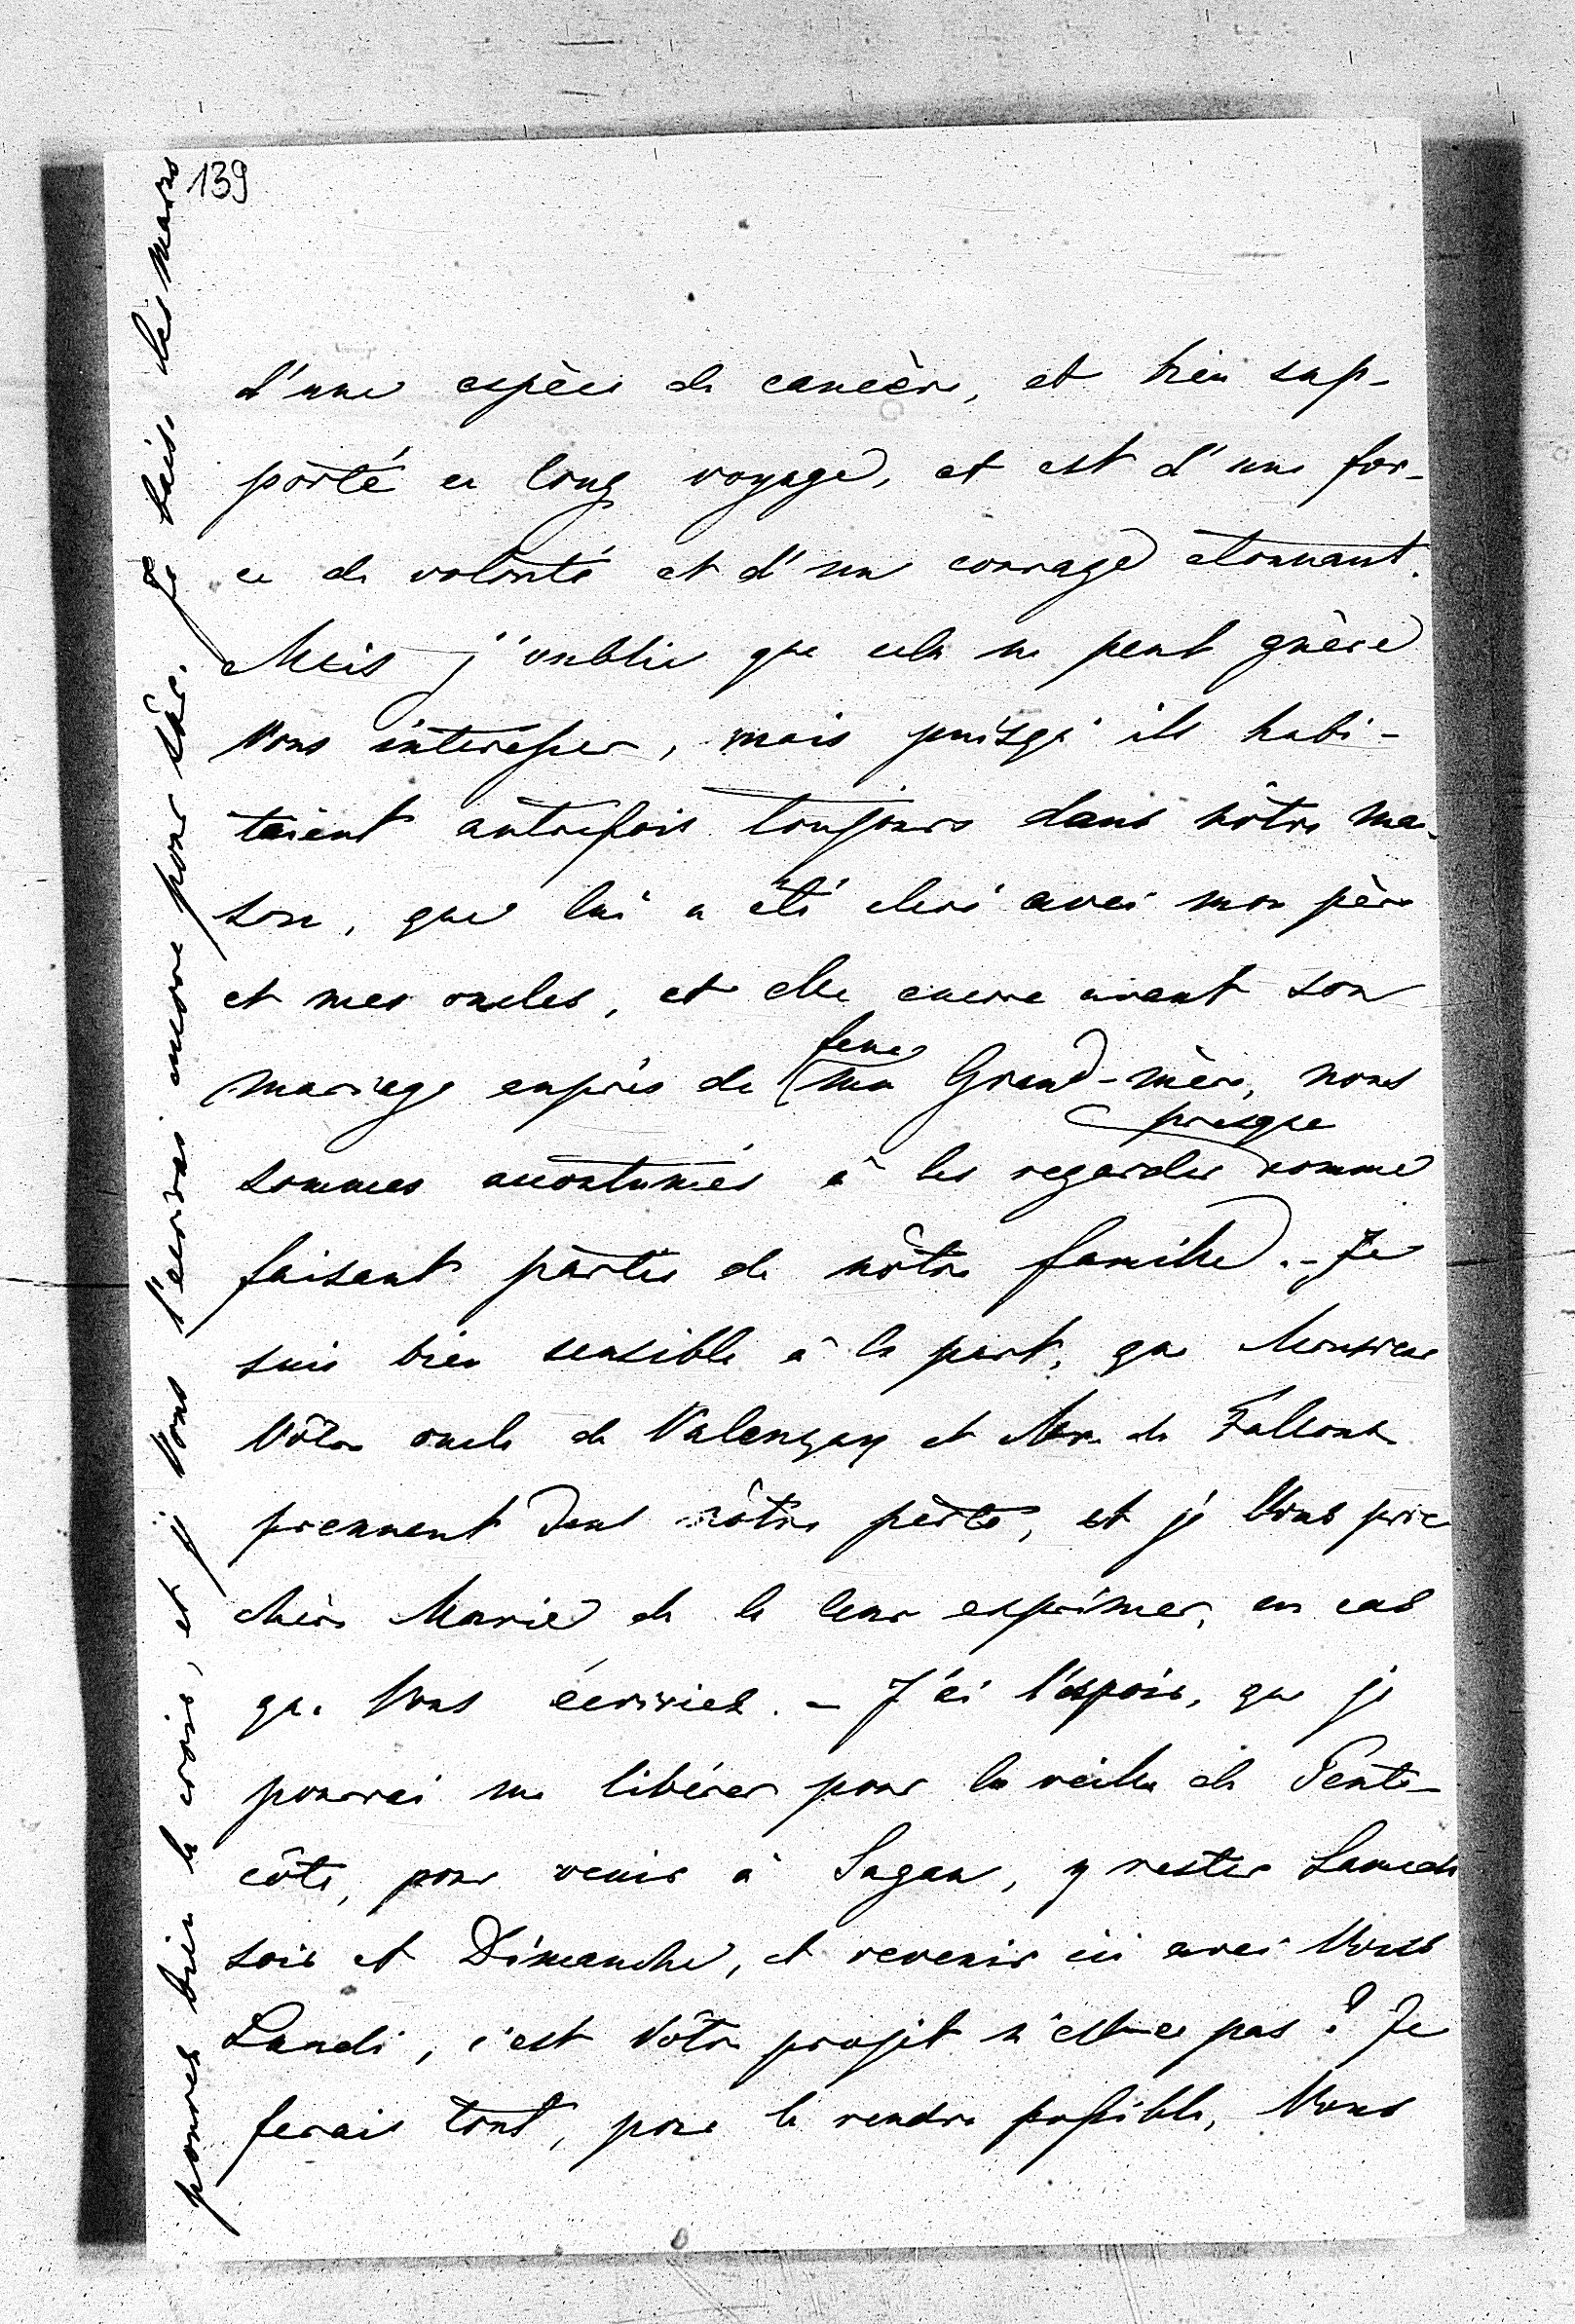 139
d'une espèce de cancère, et bien sup-
porté ce long voyage, et est d'une for-
ce de volonté et d'un courage étonnant.
Mais j'oublie que cela ne peut guère
Vous intéresser, mais puisqu'ils habi-
taient autrefois toujours dans nôtre mai-
son, que lui a été élevé avec mon père
et mes oncles, et elle encore avant son
mariage auprès de feue
ma Grand-mère, nous
sommes accoutumés à les regarder presque comme
faisant partie de nôtre famille. - Je
suis bien sensible à la part, que Monsieur
Vôtre oncle de Valençay et Mr. de Falloux
prennent dans nôtre perte, et je Vous prie
chère Marie de le leur exprimer, en cas
que Vous écriviez. - J'ai l'espoir, que je
pourrai me libérer pour la veille de Pente-
côte, pour venir à Sagan, y rester Samedi
soir et Dimanche, et revenir ici avec Vous
Lundi, c'est Vôtre projet n'est-ce pas? Je
ferais tout, pour le rendre possible, Vous
pouvez bien le croire, et je Vous l'écrirai encore pour sûr. Je baise les mains